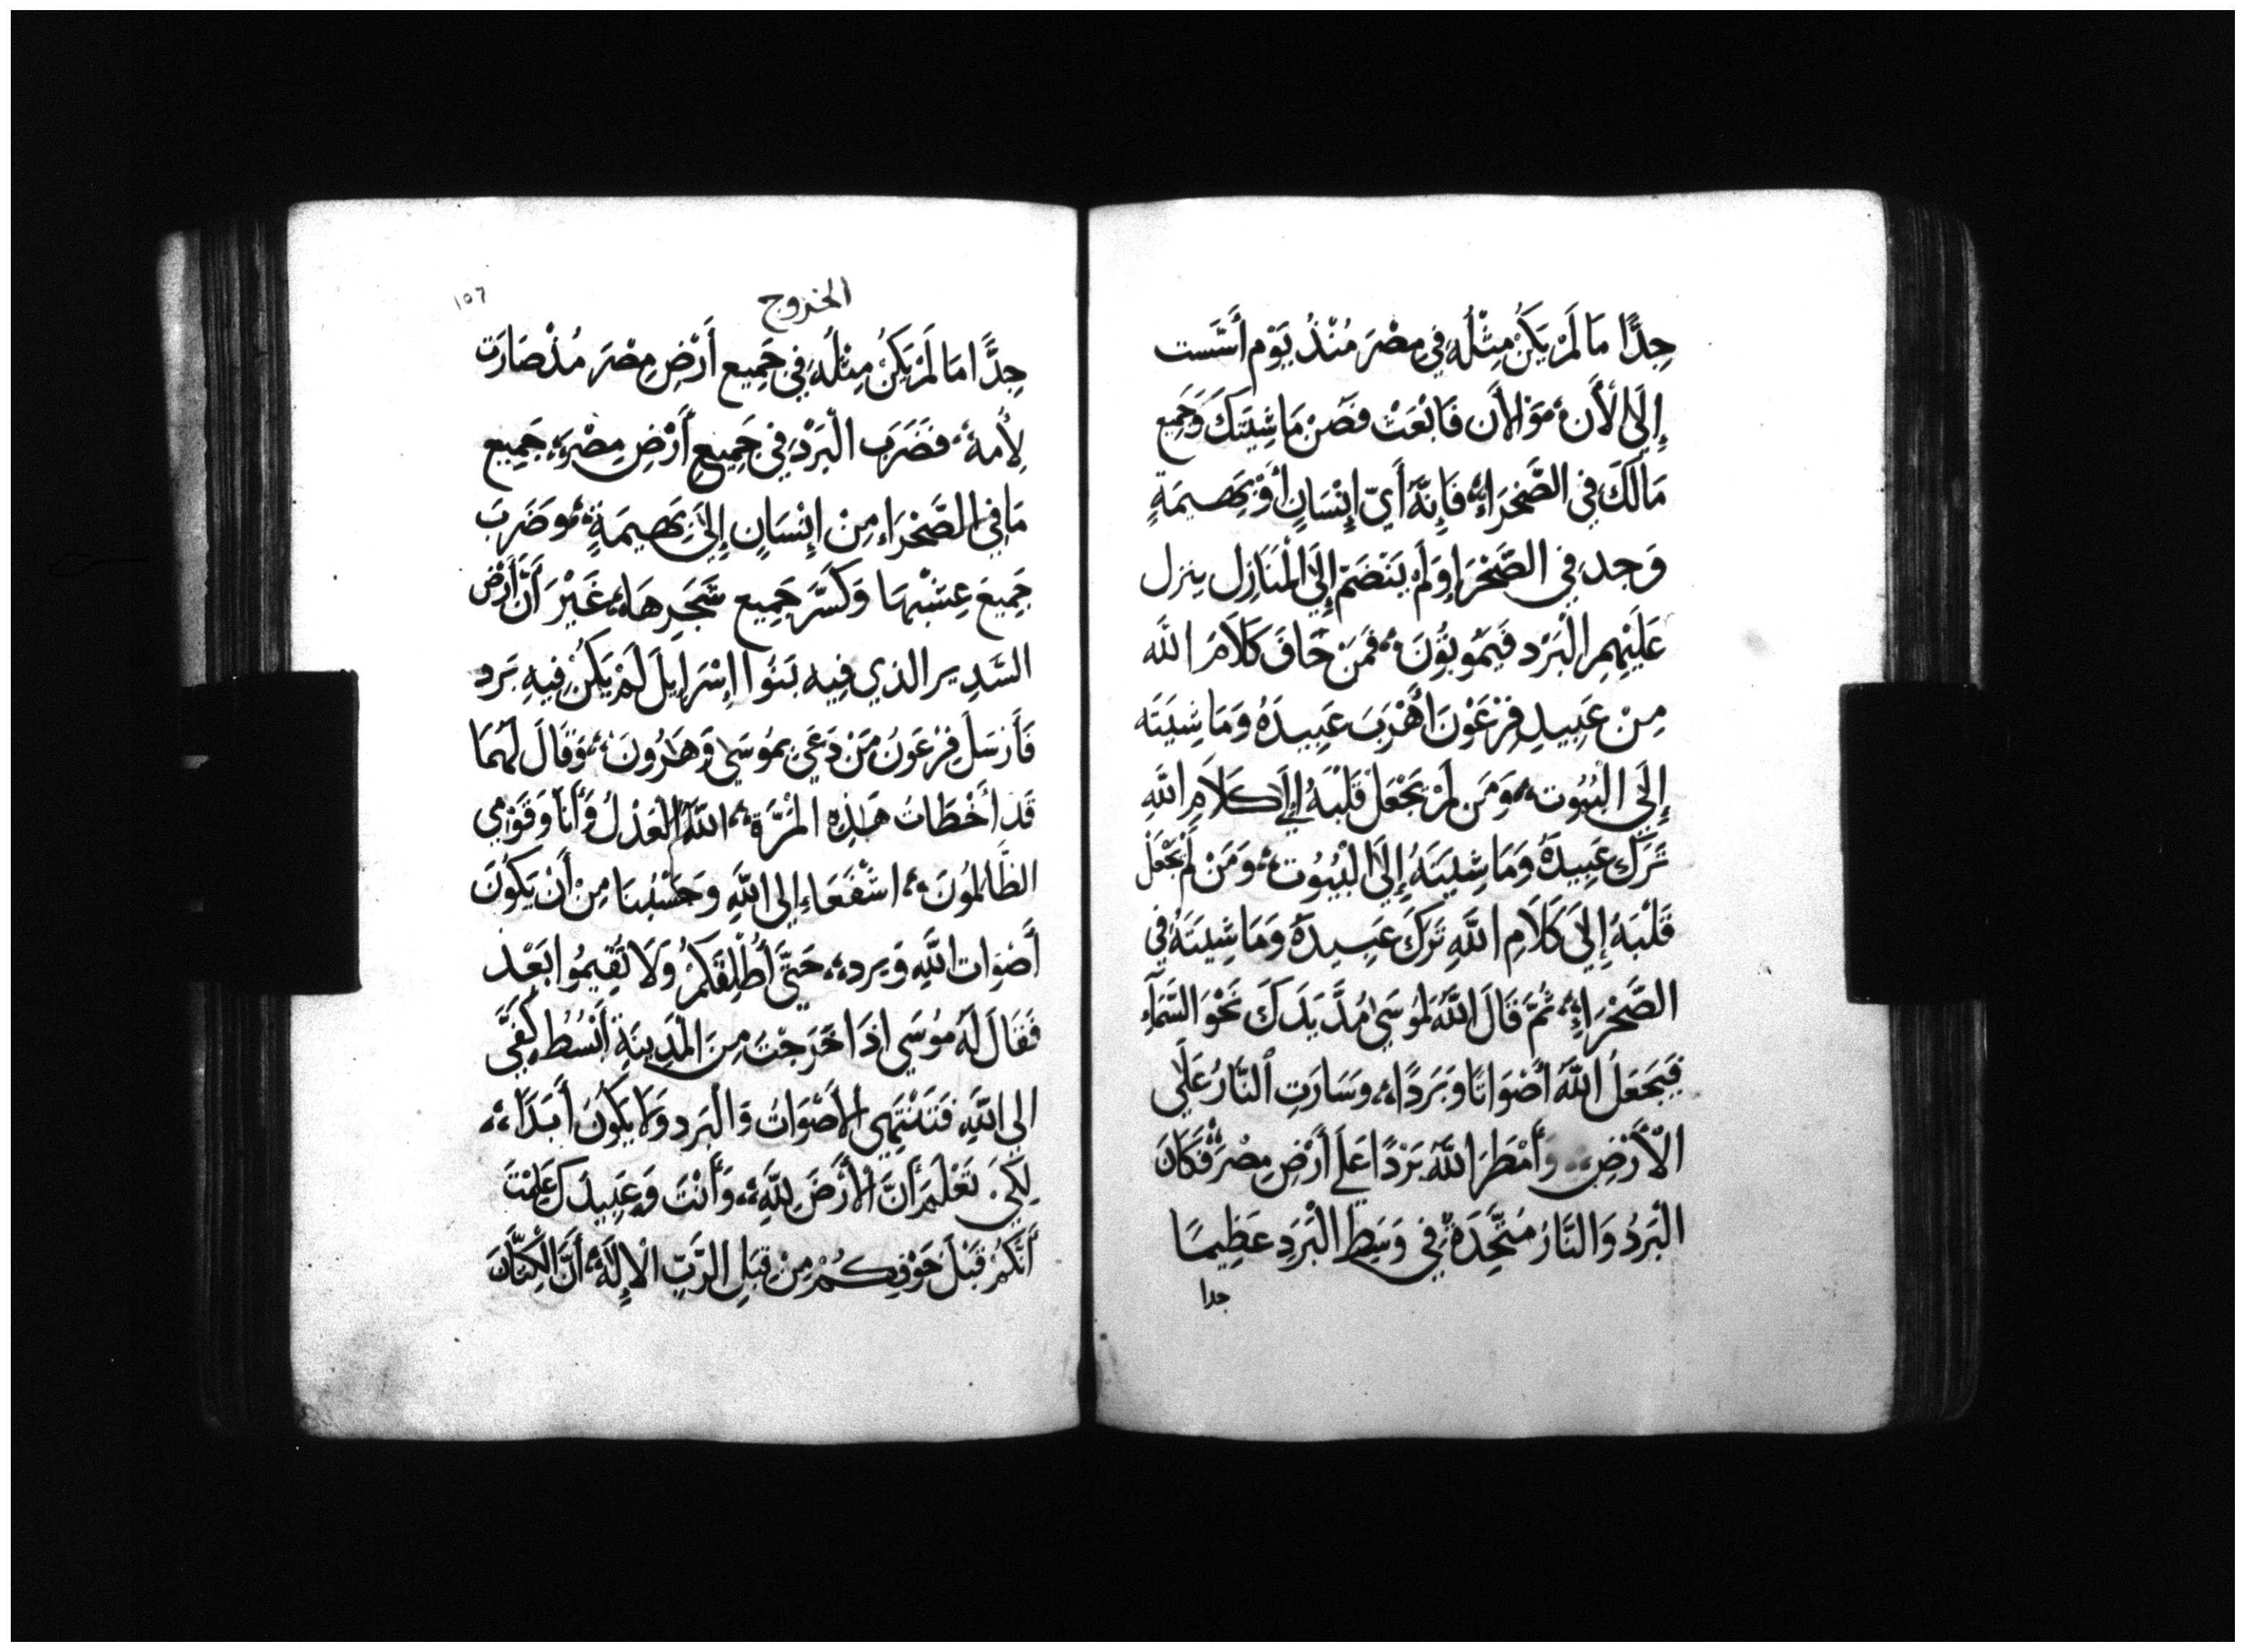 جِدًّا مَا لَمْ يَكُنْ مِثْلُهُ فِي مِصْرَ مُنْذُ يَوْمِ أُسِّسَت
إِلَى الْأَنَ، وَالْأَن فَابْعَثْ فَصُنْ مَاشِيَتَكَ وَجَمِيع
مَا لَكَ فِي الصَّحْرَاءِ، فَإِنَّهُ أَيّ إِنْسَانٍ أَوْ بَهِيمَةٍ
وَجد فِي الصَّحْرَا وَلَمْ يَنْضَمّ إِلَى الْمَنَازِل ينزل
عَلَيْهِمِ الْبَرَد فَيَمُوتُونَ، فَمَنْ خَافَ كَلَامَ الله
مِنْ عَبِيدِ فِرْعَوْنَ أَهْرَبَ عَبِيدَهُ وَمَاشِيَتَه
إِلَى الْبُيُوت، وَمَن لَمْ يَجْعَلْ قَلْبَهُ إِلَى كَلَامِ اللهِ
تَرَكَ عَبِيدَهُ وَمَاشِيَتَهُ إِلَى الْبُيُوت، وَمَنْ لَمْ يَجْعَلْ
قَلْبَهُ إِلَى كَلَامِ اللهِ تَرَكَ عَبِيدَهُ وَمَاشِيَتَهُ فِي
الصَّحْرَاءِ، ثُمَّ قَالَ اللهُ لِمُوسَي مُدَّ يَدَكَ نَحْوَ السَّمَآءِ
فَيَجعَلُ اللهُ أَصْوَاتًا وَبَرَدًا، وَسَارَتِ النَّارُ عَلَى
الْأَرْضِ، وَأَمْطَرَ اللهُ بَرَدًا عَلَى أَرْضِ مِصْرَ، فَكَانَ
الْبَرَدُ وَالنَّارُ مُتَّحِدَةً فِي وَسَطِ الْبَرَدِ عَظِيمًا
جدا
١٥٦
الخروج
جِدًّا مَا لَمْ يَكُنْ مِثْلُهُ فِي جَمِيع أَرْضِ مِصْرَ مُذْ صَارَت
لِأُمة، فَضَرَبَ الْبَرَدُ فِي جَمِيعِ أَرْضِ مِصْرَ، جَمِيع
مَا فِي الصَّحْرَاء مِنْ إِنْسَانٍ إِلَى بَهِيمَةٍ، وَضَرَبَ
جَمِيعَ عِشْبهَا وَكَسَّرَ جَمِيع شَجَرِهَا، غَيْرَ أَنَّ أَرْض
السَّدِير الذي فِيه بَنُوا إِسْرَايِلَ لَمْ يَكُنْ فِيهِ بَرَد
فَأَرْسَلَ فِرْعَونُ مَنْ دَعَي بمُوسَي وَهَارُونَ، وَقَالَ لَهُمَا
قَدْ أَخْطَاتُ هَذِهِ الْمَرَّة، اللهُ الْعَدْلُ وَأَنَا وَقَوْمِي
الظَّالِمُونَ، اشْفَعَا إلى اللهِ وَحَسْبُنَا مِنْ أَنْ يَكُونَ
أَصْوَات اللهِ وَبَرده، حَتَّى أُطْلِقَكُمْ وَلَا تُقِيمُوا بَعْد
فَقَالَ لَهُ مُوسَي اذَا خَرَجْتُ مِنَ الْمَدِينَةِ أَبْسُطُ كَفَّيَّ
إلى اللهِ فَتَنْتَهِي الأَصْوَاتُ وَالْبَرَد وَلَا يَكُونُ أَبَدًا،
لِكَيْ تَعْلَمَ أَنَّ الْأَرْضَ لِلهِ، وَأَنْتَ وَعَبِيدَكَ عَلِمْتُ
أَنَّكُمْ قَبْلَ خَوْفِكُمْ مِنْ قِبَلِ الرَّبِّ الْإِلَهِ، أَنَّ الْكِتَّانَ